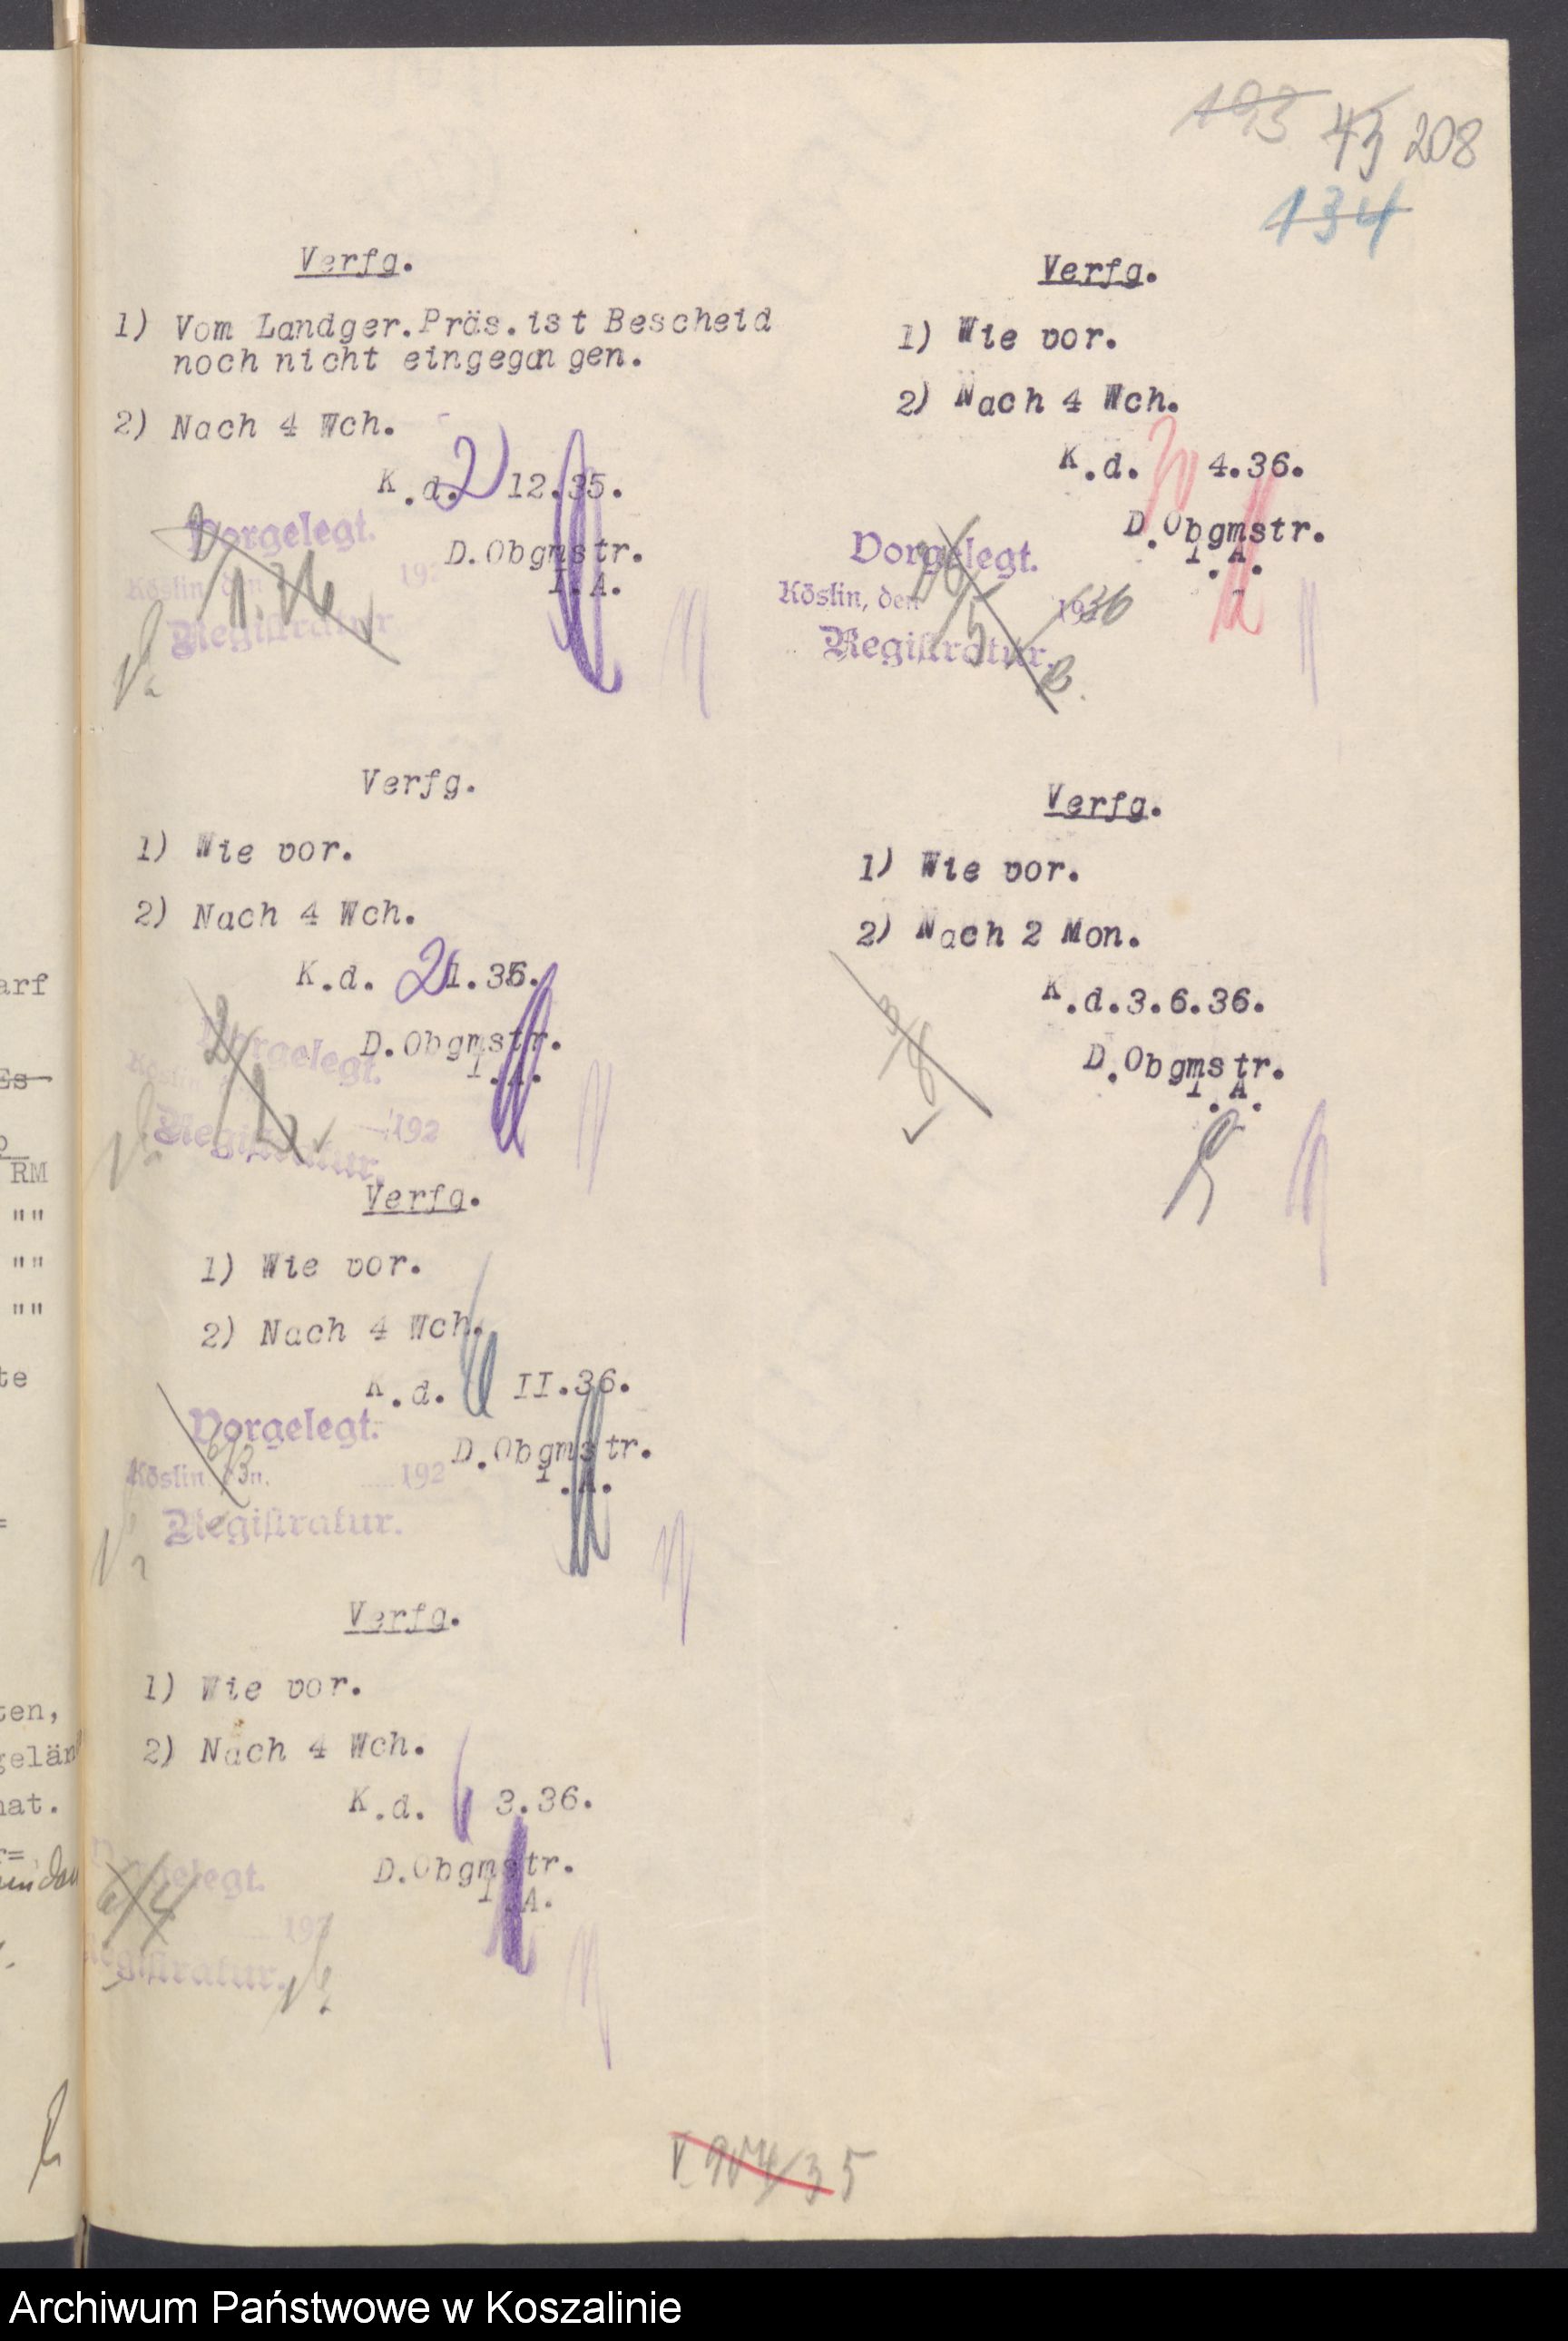 193 43 208
134
Verfg.
1) Vom Landger.Präs.ist Bescheid
noch nicht eingegangen.
2) Nach 4 Wch.
K.d. 2 12.35.
D.Obgmstr.
I.A.
Vorgelegt.
Köslin, den 192
2/1.36
Registratur.
Verfg.
1) Wie vor.
2) Nach 4 Wch.
K.d. 2 1.36.
D.Obgmstr.
I.A.
Vorgelegt.
Köslin 192
Registratur.
Verfg.
1) Wie vor.
2) Nach 4 Wch.
K.d. II.36.
D.Obgmstr.
I.A.
Vorgelegt.
Köslin, den 192
6/3
Registratur.
Verfg.
1) Wie vor.
2) Nach 4 Wch.
K.d. 6 3.36.
D.Obgmstr.
I.A.
Vorgelegt.
6/4
192
Registratur.
Verfg.
1) Wie vor.
2) Nach 4 Wch.
K.d. 4.36.
D.Obgmstr.
I.A.
Vorgelegt.
Köslin, den /5 1936
Registratur.
Verfg.
1) Wie vor.
2) Nach 2 Mon.
K.d.3.6.36.
D.Obgmstr.
I.A.
3/8
V 904/35
arf
Es
RM
""
""
""
te
=
ten,
gelän
hat.
r=
Archiwum Państwowe w Koszalinie